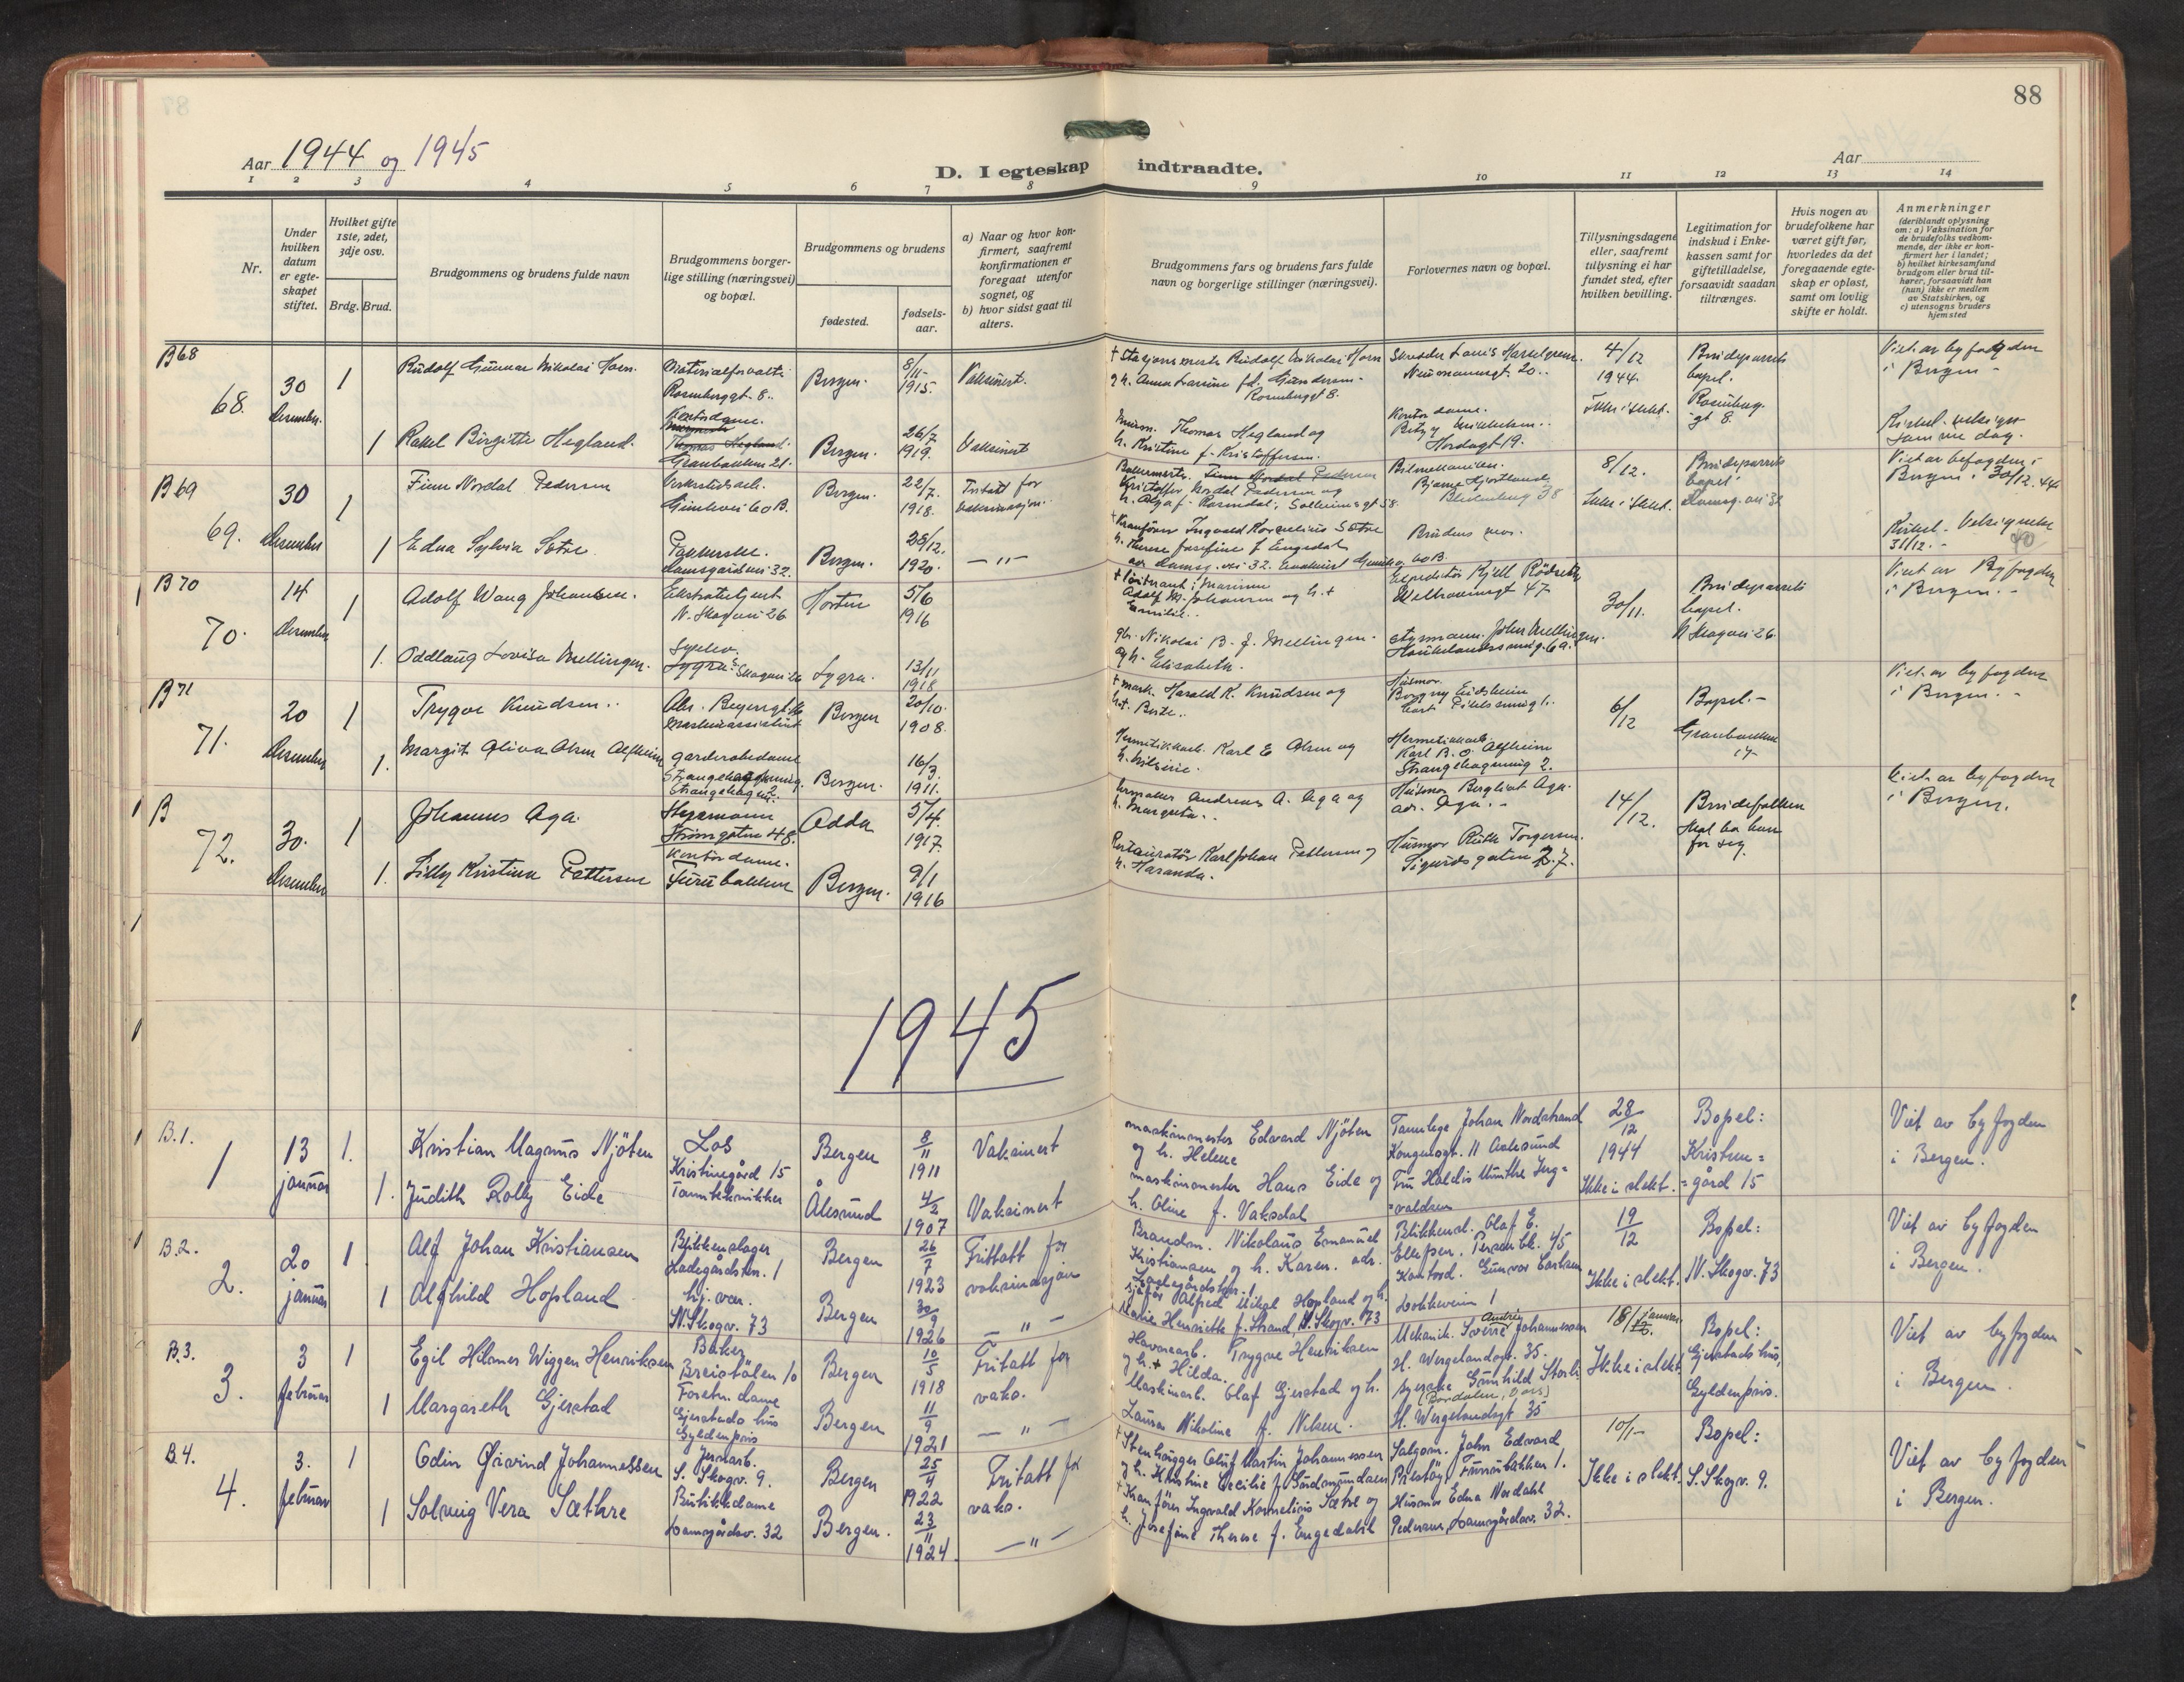 88
Aar 1944 og 1945
Aar
D. I egteskap indtraadte.
1 2 3 4 5 6 7 8 9 10 11 12 13 14
Nr.
Under hvilken datum er egteskapet stiftet.
Hvilket gifte 1ste, 2det, 3dje osv.
Brdg. Brud.
Brudgommens og brudens fulde navn
Brudgommens borgerlige stilling (næringsvei) og bopæl.
Brudgommens og brudens
fødested.
fødselsaar.
a) Naar og hvor konfirmert, saafremt konfirmationen er foregaat utenfor sognet, og
b) hvor sidst gaat til alters.
Brudgommens fars og brudens fars fulde navn og borgerlige stillinger (næringsvei).
Forlovernes navn og bopæl.
Tillysningsdagene eller, saafremt tillysning ei har fundet sted, efter hvilken bevilling.
Legitimation for indskud i Enkekassen samt for giftetilladelse, forsaavidt saadan tiltrænges.
Hvis nogen av brudefolkene har været gift før, hvorledes da det foregaaende egteskap er opløst, samt om lovlig skifte er holdt.
Anmerkninger
(deriblandt oplysning om: a) Vaksination for de brudefolks vedkommende, der ikke er konfirmert her i landet; b) hvilket kirkesamfund brudgom eller brud tilhører, forsaavidt han (hun) ikke er medlem av Statskirken, og c) utensogns bruders hjemsted
B 68
68. 30 Desember
1 Rudolf Gunnar Nikolai Horn. Materialforvalt. Rosenberggt. 8. Bergen. 8/11- 1915. Vaksinert.
† Stasjonsmester Rudolf Nikolai Horn g h. Anna Larine fd. Gundersen. Rosenberggt 8.
Neumannsgt. 20.
4/12 1944. Ikke i slekt.
Brudeparets bopel. Rosenberg gt 8.
Viet av byfogden i Bergen -
1 Rakel Birgitte Hegland. Kontordame. Thomas Hegland. Granbakken 21. Bergen. 26/7 1919. Vaksinert
Murm. Thomas Hegland og h. Kristine f. Kristoffersen.
Kontordame. Hordagt 19.
Kirkel. velsignet samme dag.
B 69
69. 30 Desember
1 Finn Nordal Pedersen Verkstedsarb. Gimlevei 60 B. Bergen. 22/7. 1918. Fritatt for vaksinasjon.
Bakermester. Finn Nordal Pedersen Kristoffer Nordal Pedersen og h. Olga f. Rosendal, Solheimsgt 58.
Bilmekaniker. Bjarne Hjortland
8/12. Ikke i slekt.
Brudeparets bopel. Damsg. vei 32
Viet av byfogden i Bergen. 30/12.44
1 Edna Sylvia Sætre. Pakkerske. Damsgårdsvei 32. Bergen. 25/12. 1920. — " —
† Kranfører Ingvald Kornelius Sætre h. Therese Josefine f. Engedal adr Damsg. vei 32.
Brudens mor.
Kirkel. Velsignelse 31/12. -
B 70
70. 14 Desember
1 Adolf Wang Johansen. Ekstrabetjent. N. Skogvei 26 Horten 5/6 1916
† Løitnant i Marinen Adolf M. Johansen og h. † Emilie.
Ekspeditør Kjell Rødseth Welhavensgt 47
30/11.
Brudeparets bopel. N Skogvei 26.
Viet av Byfogden i Bergen. -
1. Oddlaug Lovisa Mellingen. Syelev. Lygra. S. Skogvei 26 Lygra. 13/11 1918
gbr. Nikolai B. J. Mellingen. g h. Elisabeth.
Styrmann. John Mellingen.
B 71
71. 20 Desember
1 Trygve Knudsen. Maskinassistent Bergen 20/10. 1908.
† mask. Harald K. Knudsen og h. † Berte.
Husmor. Borgny Eidsheim
6/12
Bopel. - Granbakken 17
Viet av byfogden i Bergen. -
1. Margit Oliva Olsen Alfheim garderobedame Strangehagen 2. Bergen. 16/3. 1911.
Hermetikkarb. Karl E Olsen og h. Milrine.
Hermetikkarb. Karl B. O. Alfheim Strangehagsmug 2.
B
72. 30. Desember
1 Johannes Aga. Styrmann Strømgaten 48. Odda 5/4. 1917
Urmaker Andreas A. Aga og h. Margreta.
Husmor Bergliot Aga. adr. Aga. -
14/12.
Brudefolken skal ha hver for seg.
Viet av byfogden i Bergen.
1. Lilly Kristine Pettersen Kontordame. Furubakken Bergen. 9/1 1916
Restauratør Karl Johan Pettersen og h. Haranda.
Husmor Ruth Torgersen. Sigurdsgaten 7.
1945
B.1.
1 13 januar
1. Kristian Magnus Njöten Los Kristinegård 15 Bergen 8/11 1911 Vaksinert
maskinmester Edvard Njöten og h. Helene
Tannlege Johan Nordstrand Kongensgt. 11 Aalesund
28/12 1944 Ikke i slekt.
Bopel: Kristine= =gård 15
Viet av byfogden i Bergen.
1. Judith Rolly Eide Tanntekniker Ålesund 4/2 1907 Vaksinert
maskinmester Hans Eide og h. Oline f. Vaksdal
Fru Haldis Munthe Ing= =valdsen
B.2.
2. 20 januar
1 Alf Johan Kristiansen Blikkenslager Ladegårdstrn. 1 Bergen 26/7 1923 Fritatt for vaksinasjon
Brandm. Nikolaus Emanuel Kristiansen og h. Karen. adr. Ladegårdsterr. 1
Blikkensl. Olaf E. Ellefsen. Persenbk. 45
19/12 Ikke i slekt.
Bopel: N. Skogv. 73
Viet av byfogden i Bergen.
1 Alfhild Hopland hj. vær. N. Skogv. 73 Bergen 30/9 1926 — " —
sjåfør Alfred Mikal Hopland og h. Marie Henriette f. Strand, N. Skogv. 73
Kontord. Gunvor Carlsen
B.3.
3. 3 februar
1 Egil Hilmer Wiggen Henriksen Baker Breistölen 10 Bergen 10/5 1918 Fritatt for vaks.
Havnearb. Trygve Henriksen og h. † Hilda.
Mekanik. Sverre Andrei Johannessen H. Wergelandsgt. 35.
18/1 januar Ikke i slekt
Bopel: Gjerstads hus, Gyldenpris.
Viet av byfogden i Bergen.
1 Margareth Gjerstad Forretn. dame Gjerstads hus Gyldenpris Bergen 11/9 1921 — " —
Maskinarb. Olaf Gjerstad og h. Laura Nikoline f. Nilsen.
Syerske Gunhild H. Wergelandsgt 35
B.4.
4. 3. februar
1 Odin Öivind Johannessen Jernarb. S. Skogv. 9. Bergen 25/4 1922 Fritatt for vaks.
† Stenhugger Oluf Martin Johannessen og h. Kristine Cecilie f. Gudmundsen
Salgsm. John Edvard Prestöy Furubakken 1.
10/1- Ikke i slekt.
Bopel: S. Skogv. 9.
Viet av byfogden i Bergen.
1 Solveig Vera Sæthre Butikkdame Damsgårdsv. 32 Bergen. 23/11 1924. — " —
† Kranförer Ingvald Kornelius Sætre og h. Josefine Therese f. Engedahl
Husmor Edna Nordahl Pedersen, Damsgårdsv. 32.